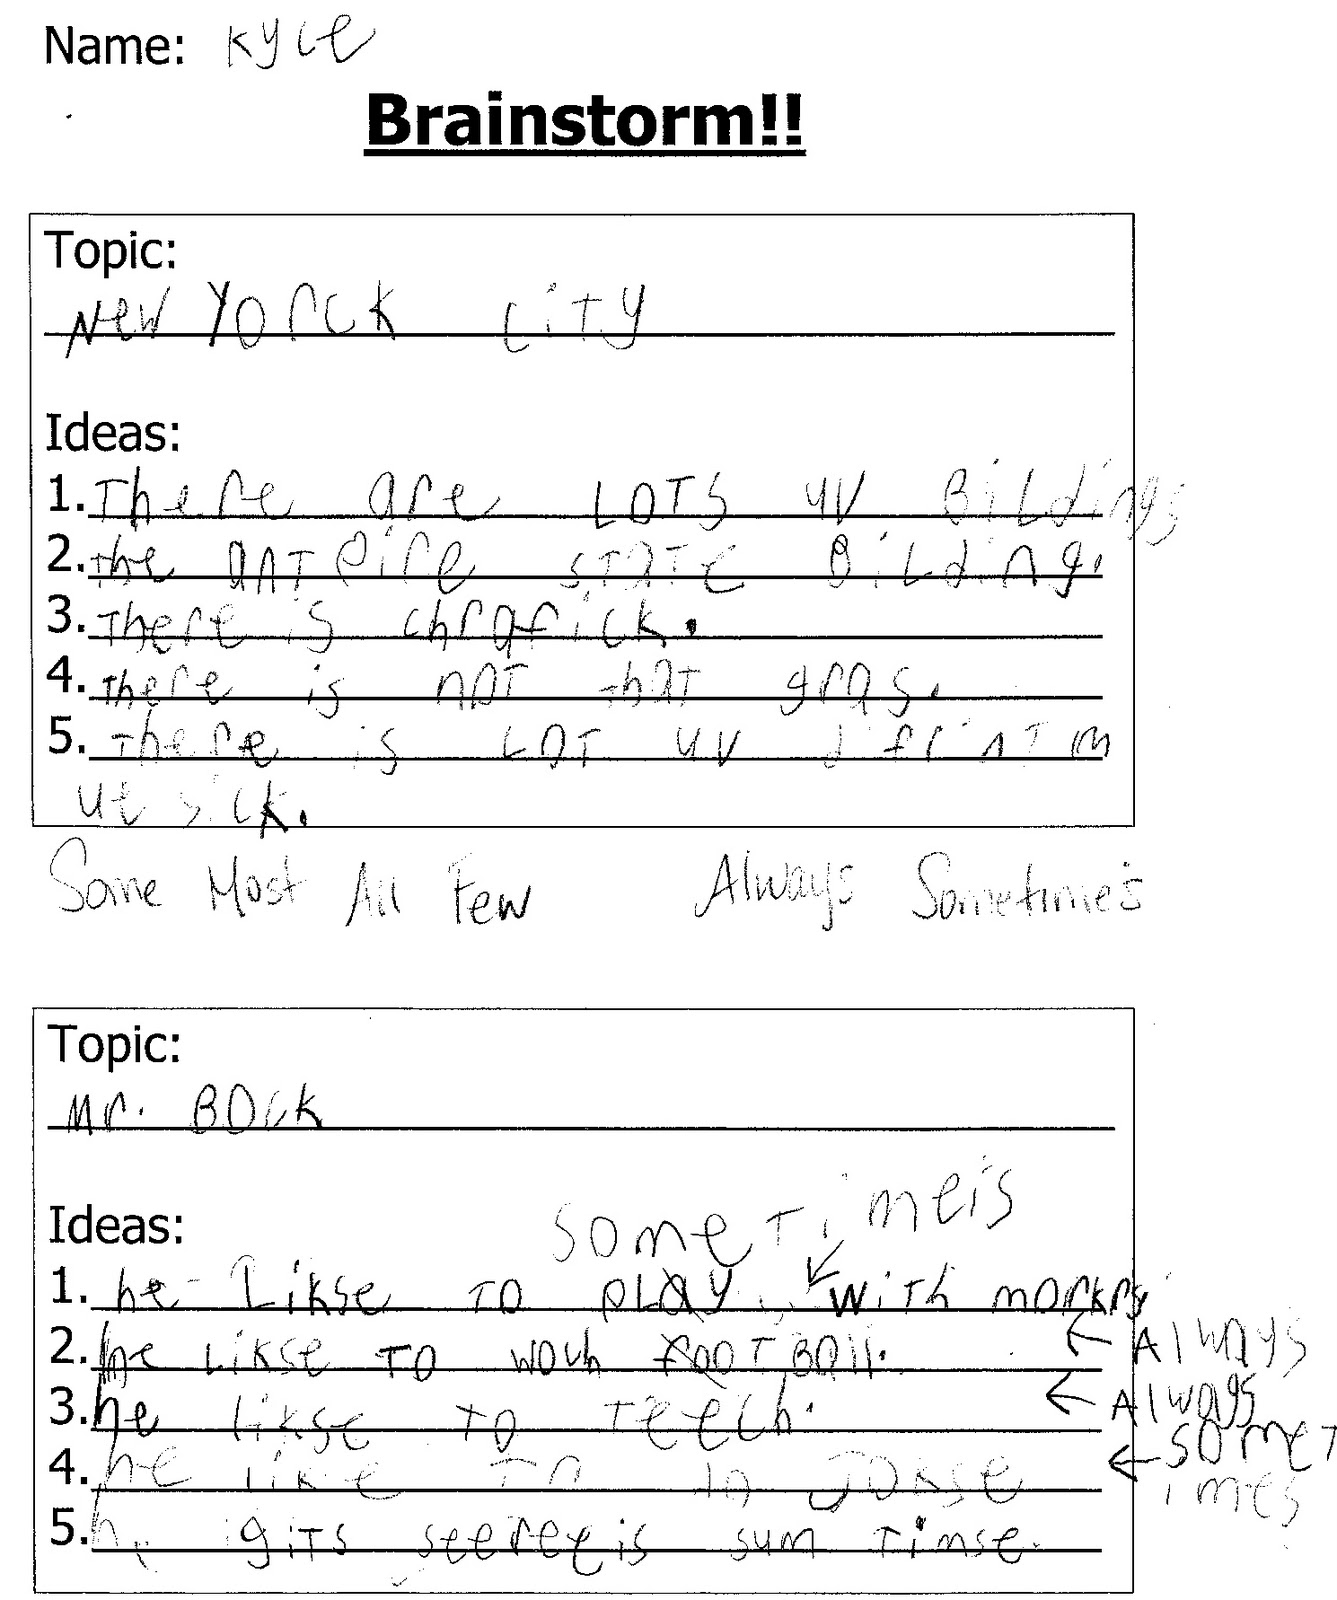 Name: Kyle
Brainstorm!!
Topic:
New Yorck City
Ideas:
1. There are LOTS uv BiLdings
2. the anTpire STaTe BiLding.
3. There is chrafick.
4. there is noT that gras.
5. There is LOT uv difrinT m
usick.
Some Most All Few Always Sometimes
Topic:
Mr. BOck
Ideas:
someTimeis
1. he Likse TO pLay with morkrs
2. he Likse TO woch fooTBall. Always
3. he likse TO Teech. Always
4. he like To Jokse someT
imes
5. he giTs seereeis sum Timse.